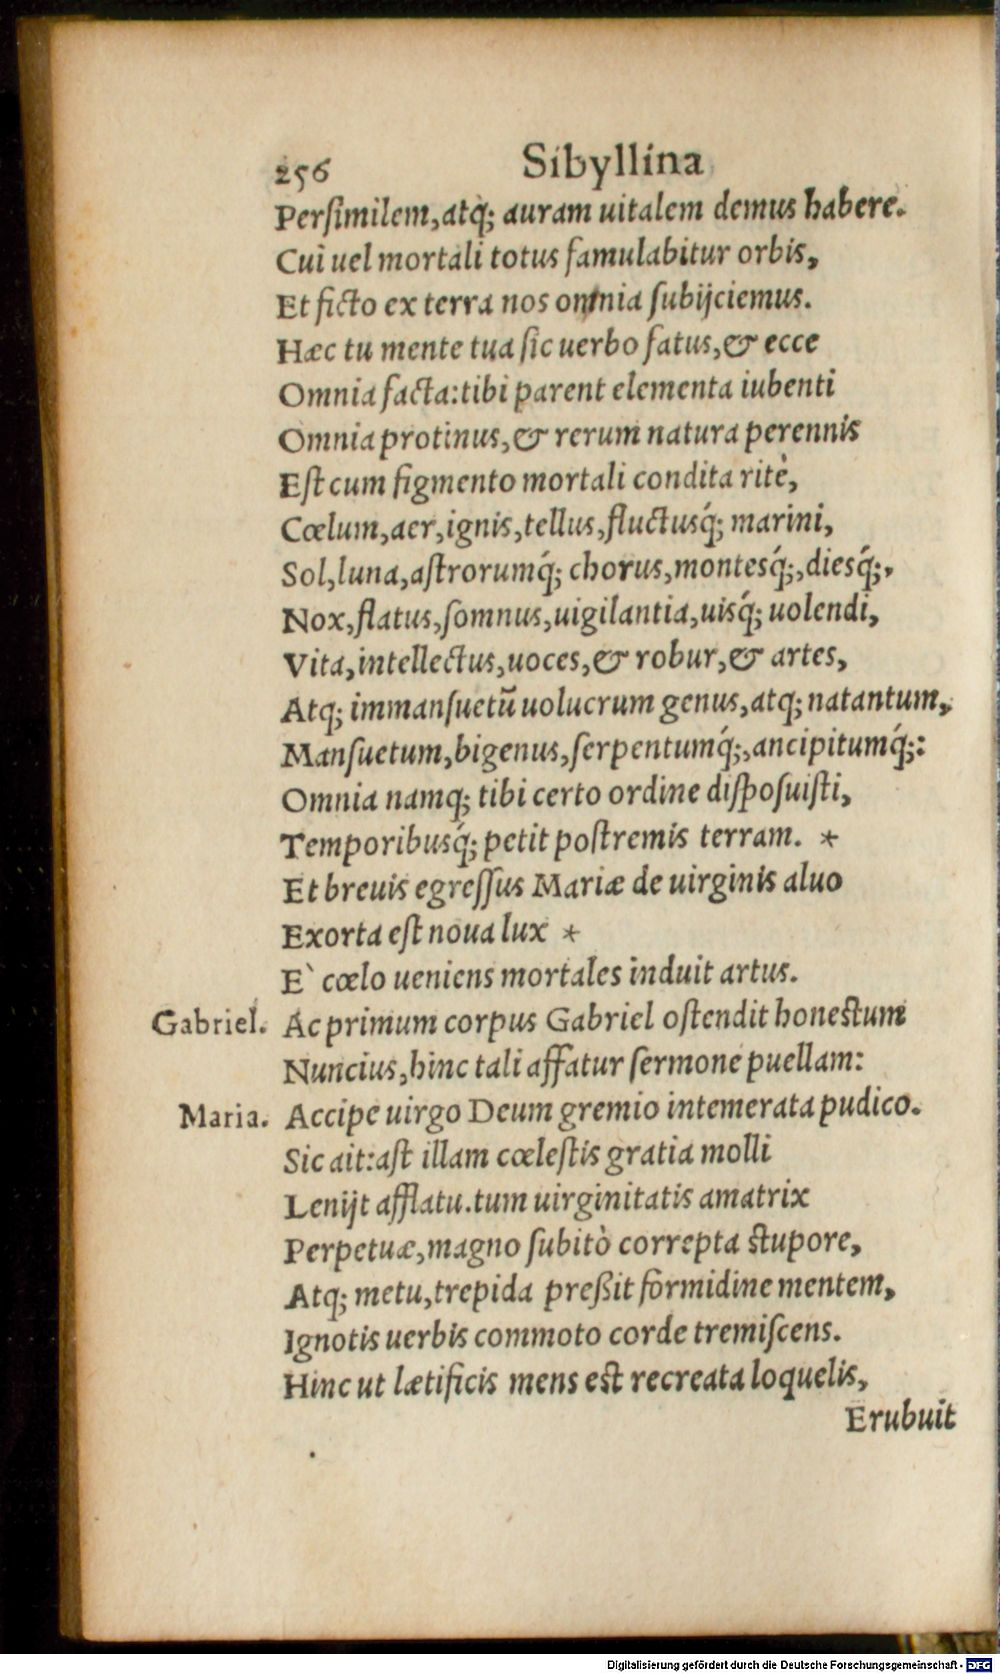 256 Sibyllina
Persimilem, atq; auram uitalem demus habere.
Cui uel mortali totus famulabitur orbis,
Et ficto ex terra nos omnia subijciemus.
Hæc tu mente tua sic uerbo fatus, & ecce
Omnia facta: tibi parent elementa iubenti
Omnia protinus, & rerum natura perennis
Est cum figmento mortali condita ritè,
Cœlum, aer, ignis, tellus, fluctusq́; marini,
Sol, luna, astrorumq́; chorus, montesq́;, diesq́;,
Nox, flatus, somnus, uigilantia, uisq́; uolendi,
Vita, intellectus, uoces, & robur, & artes,
Atq; immansuetũ uolucrum genus, atq; natantum,
Mansuetum, bigenus, serpentumq́;, ancipitumq́;:
Omnia namq; tibi certo ordine disposuisti,
Temporibusq́; petit postremis terram. *
Et breuis egressus Mariæ de uirginis aluo
Exorta est noua lux *
E` cœlo ueniens mortales induit artus.
Gabriel. Ac primum corpus Gabriel ostendit honestum
Nuncius, hinc tali affatur sermone puellam:
Maria. Accipe uirgo Deum gremio intemerata pudico.
Sic ait: ast illam cœlestis gratia molli
Lenijt afflatu. tum uirginitatis amatrix
Perpetuæ, magno subitò correpta stupore,
Atq; metu, trepida preßit formidine mentem,
Ignotis uerbis commoto corde tremiscens.
Hinc ut lætificis mens est recreata loquelis,
Erubuit
Digitalisierung gefördert durch die Deutsche Forschungsgemeinschaft - DFG